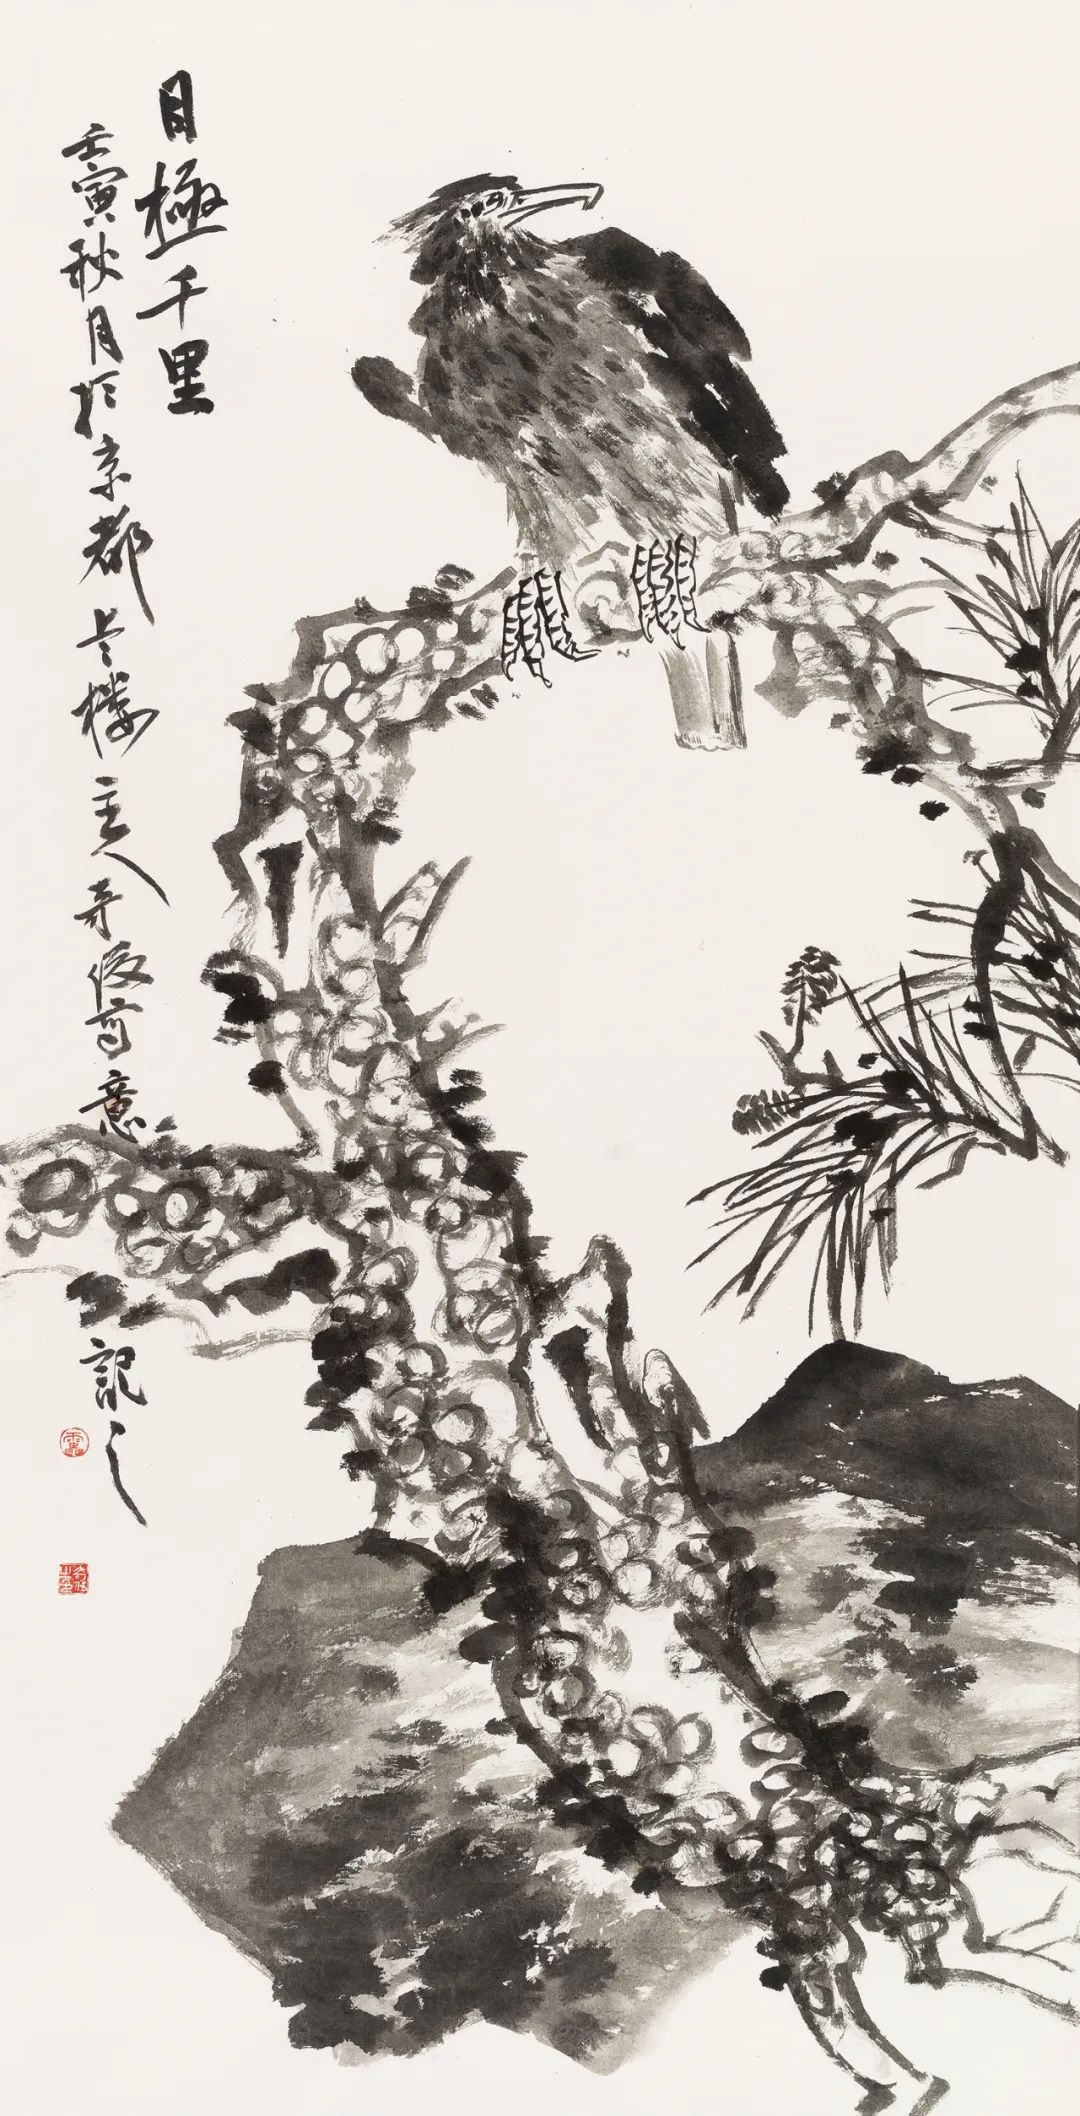 目極千里
壬寅秋月於京都
樓主人奇俊寫意
記之